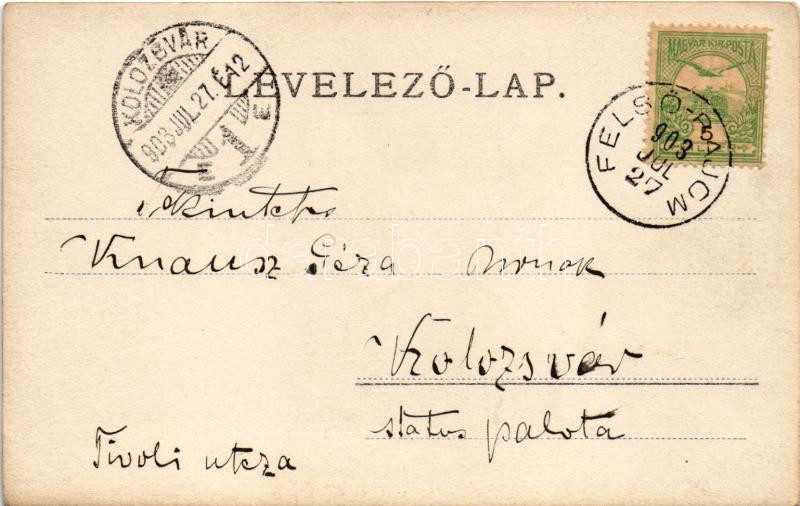 KOLOZSVÁR
903 JUL. 27. É 12
MAGYAR KIR. POSTA
5
LEVELEZŐ-LAP.
FELSŐ-BAJOM
903
JUL
27
Tekintetes
Knausz Géza Urnak
Kolozsvár
status palota
Tivoli utcza
darabanth